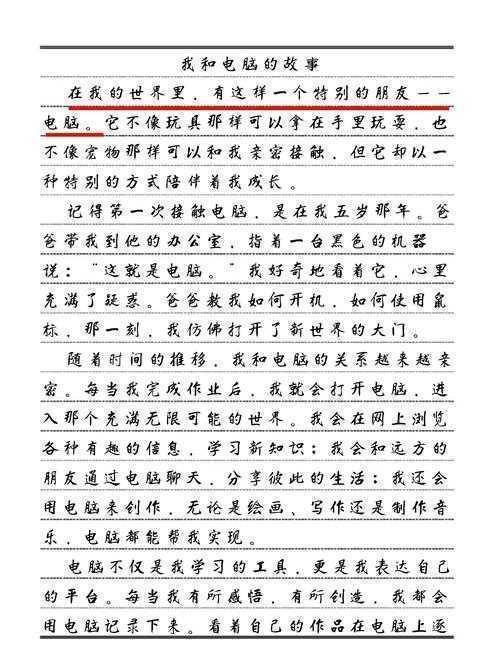 我和电脑的故事
在我的世界里，有这样一个特别的朋友——
电脑。它不像玩具那样可以拿在手里玩耍，也
不像宠物那样可以和我亲密接触，但它却以一
种特别的方式陪伴着我成长。
记得第一次接触电脑，是在我五岁那年。爸
爸带我到他的办公室，指着一台黑色的机器
说：“这就是电脑。”我好奇地看着它，心里
充满了疑惑。爸爸教我如何开机，如何使用鼠
标，那一刻，我仿佛打开了新世界的大门。
随着时间的推移，我和电脑的关系越来越亲
密。每当我完成作业后，我就会打开电脑，进
入那个充满无限可能的世界。我会在网上浏览
各种有趣的信息，学习新知识；我会和远方的
朋友通过电脑聊天，分享彼此的生活；我还会
用电脑来创作，无论是绘画、写作还是制作音
乐，电脑都能帮我实现。
电脑不仅是我学习的工具，更是我表达自己
的平台。每当我有所感悟，有所创造，我都会
用电脑记录下来。看着自己的作品在电脑上逐